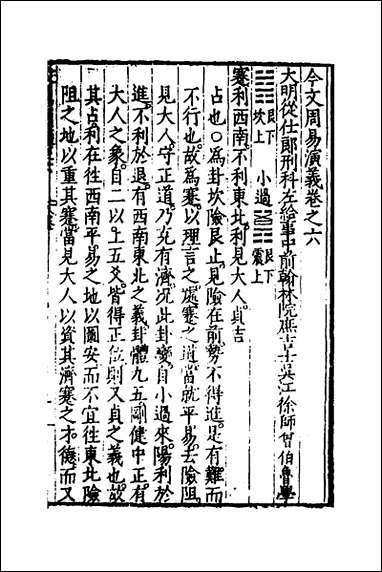 今文周易演義卷之六
大明從仕郎刑科左給事中前翰林院庶吉士吳江徐師曾伯魯學
艮下坎上 小過 艮下震上
蹇利西南不利東北利見大人貞吉
占也○爲卦坎險艮止見險在前勢不得進是有難而
不行也故爲蹇以理言之處蹇之道當就平易去險阻
見大人守正道乃克有濟況此卦變自小過來陽利於
進不利於退有西南東北之義卦體九五剛健中正有
大人之象自二以上五爻皆得正位則又貞之義也故
其占利在往西南平易之地以圖安而不宜往東北險
阻之地以重其蹇當見大人以資其濟蹇之才德而又